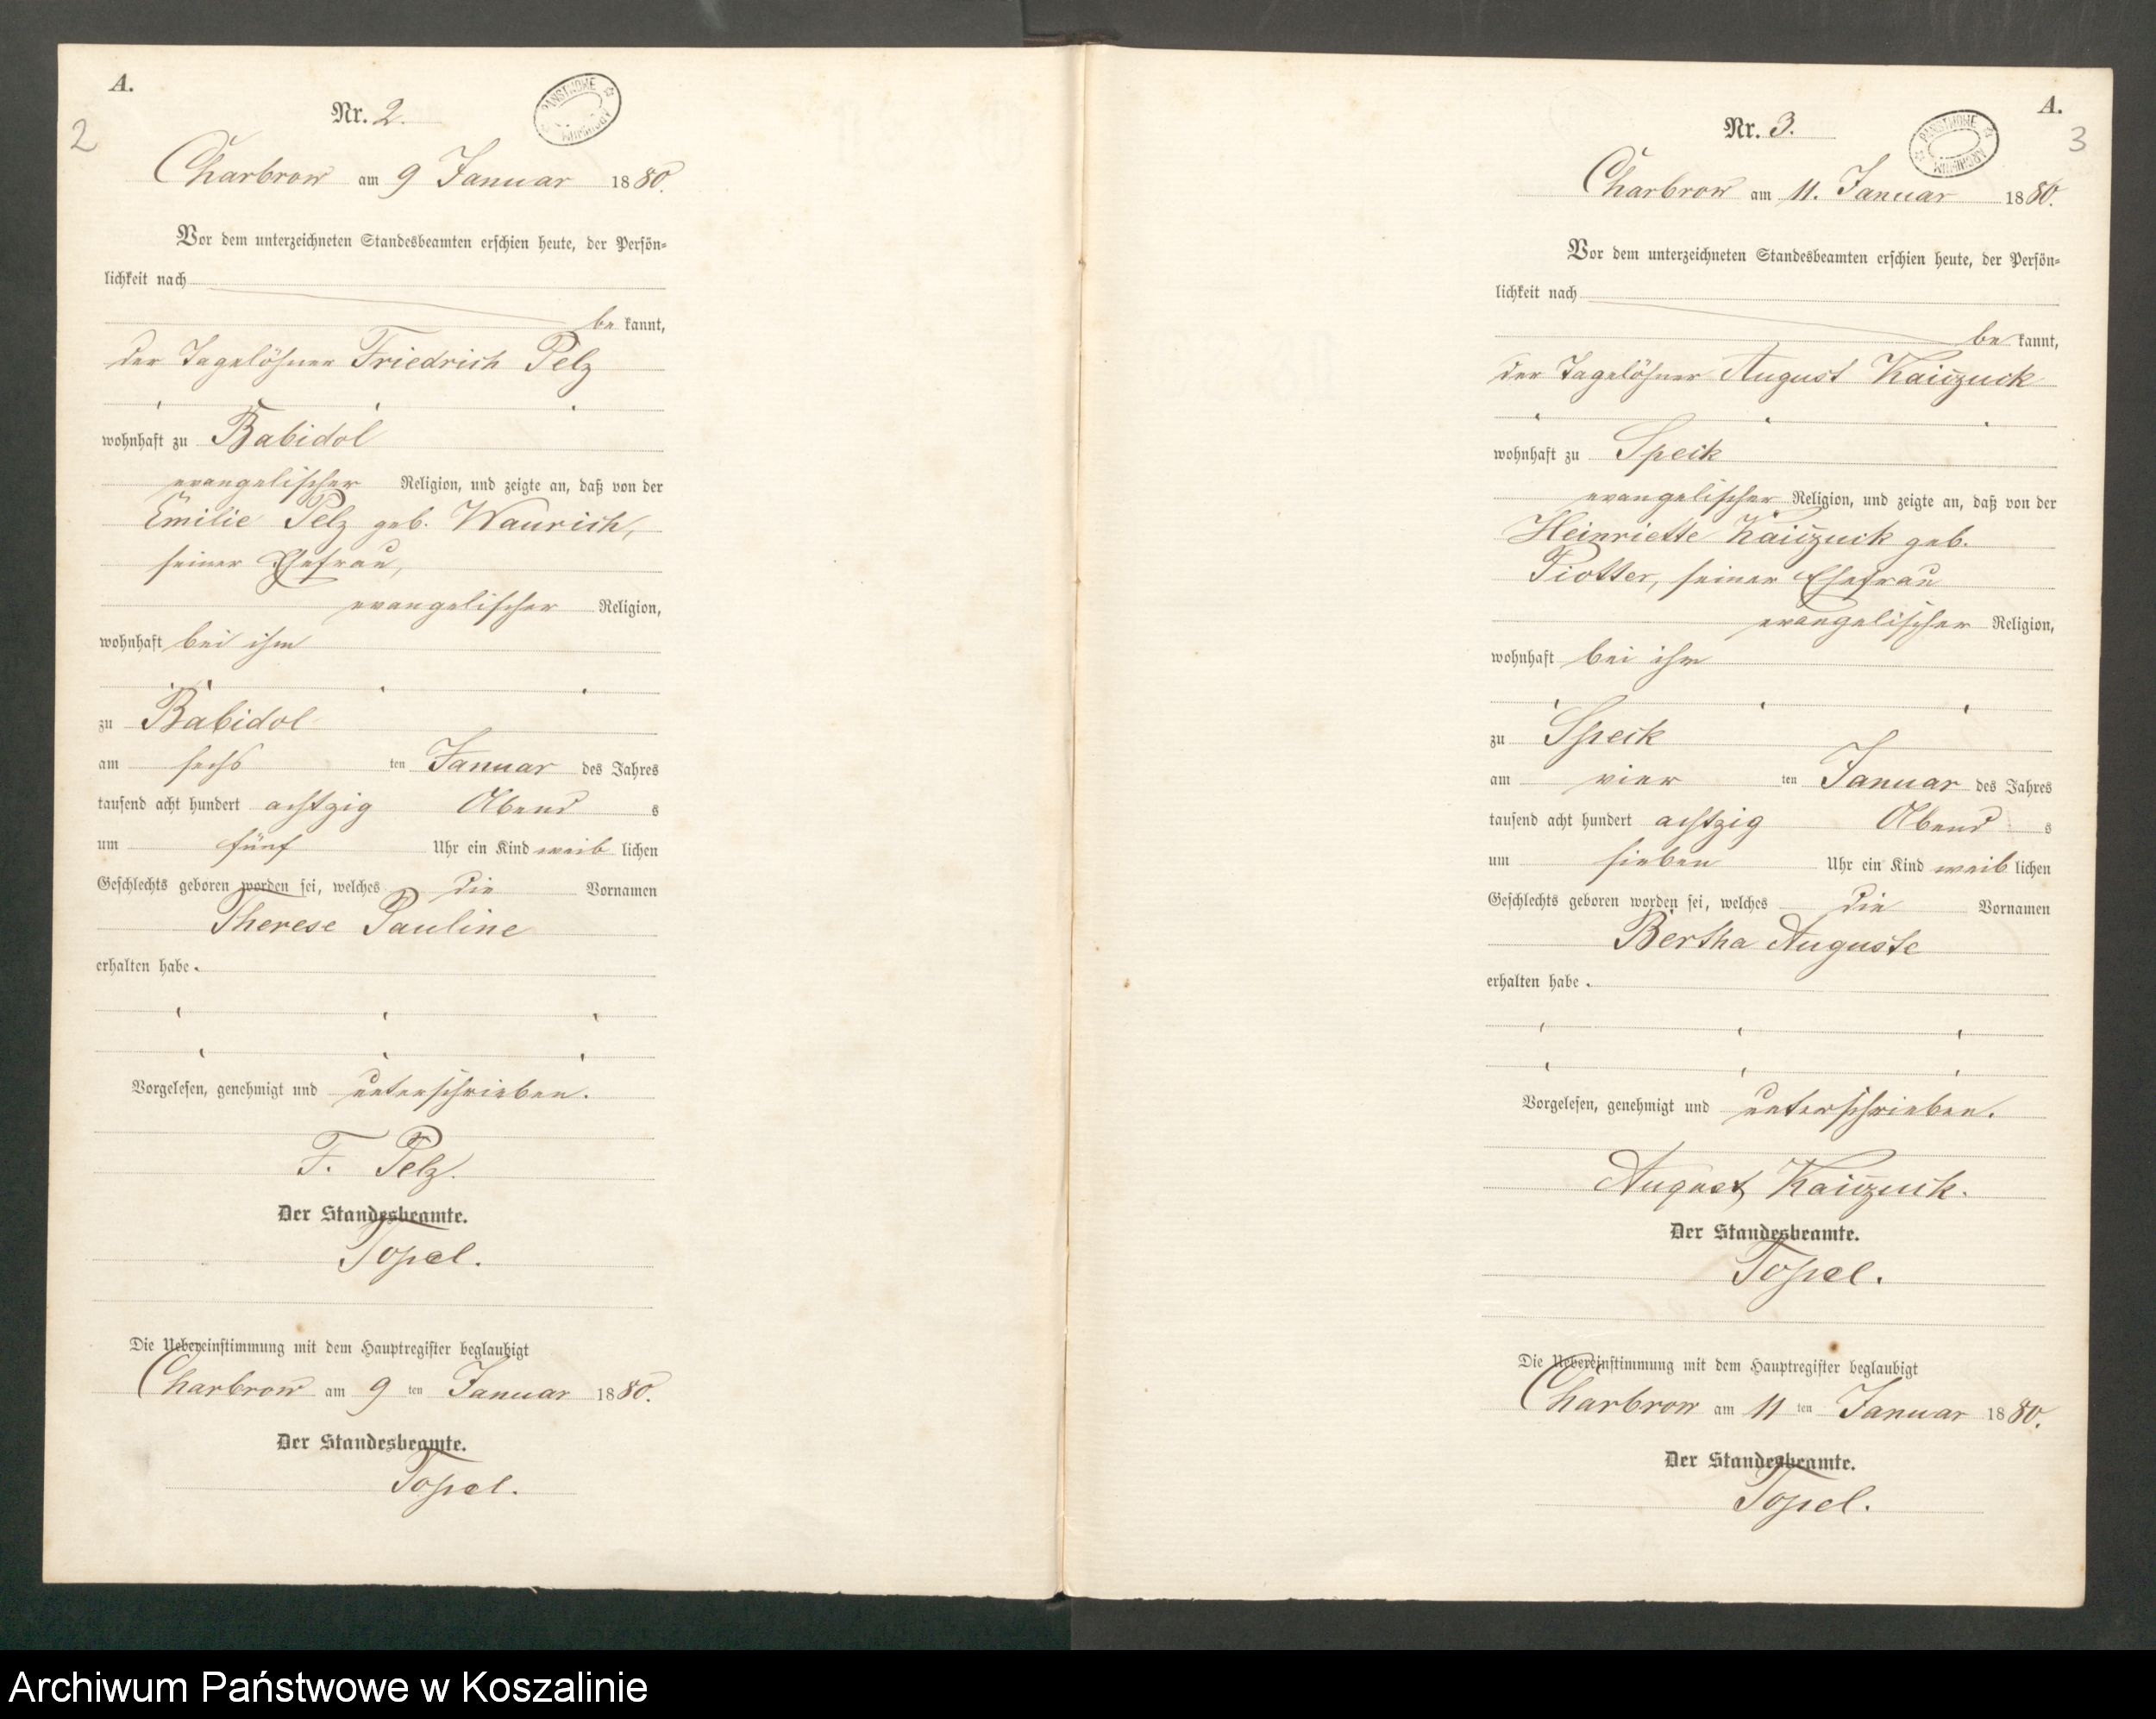 A.
2
Nr. 2.
PAŃSTWOWE ARCHIWUM
Charbrow am 9 Januar 1880.
Vor dem unterzeichneten Standesbeamten erschien heute, der Persön-
lichkeit nach
be kannt,
der Tagelöhner Friedrich Pelz
wohnhaft zu Babidol
evangelischer Religion, und zeigte an, daß von der
Emilie Pelz geb. Waurich,
seiner Ehefrau,
evangelischer Religion,
wohnhaft bei ihm
zu Babidol
am sechs ten Januar des Jahres
tausend acht hundert achtzig Abend s
um fünf Uhr ein Kind weib lichen
Geschlechts geboren worden sei, welches die Vornamen
Therese Pauline
erhalten habe.
Vorgelesen, genehmigt und unterschrieben.
F. Pelz.
Der Standesbeamte.
Topel.
Die Uebereinstimmung mit dem Hauptregister beglaubigt
Charbrow am 9 ten Januar 1880.
Der Standesbeamte.
Topel.
A.
3
Nr. 3.
PAŃSTWOWE ARCHIWUM
Charbrow am 11. Januar 1880.
Vor dem unterzeichneten Standesbeamten erschien heute, der Persön-
lichkeit nach
be kannt,
der Tagelöhner August
wohnhaft zu Speck
evangelischer Religion, und zeigte an, daß von der
Heinriette geb.
Piotter, seiner Ehefrau
evangelischer Religion,
wohnhaft bei ihm
zu Speck
am vier ten Januar des Jahres
tausend acht hundert achtzig Abend s
um sieben Uhr ein Kind weib lichen
Geschlechts geboren worden sei, welches die Vornamen
Bertha Auguste
erhalten habe.
Vorgelesen, genehmigt und unterschrieben.
August
Der Standesbeamte.
Topel.
Die Uebereinstimmung mit dem Hauptregister beglaubigt
Charbrow am 11 ten Januar 1880.
Der Standesbeamte.
Topel.
Archiwum Państwowe w Koszalinie